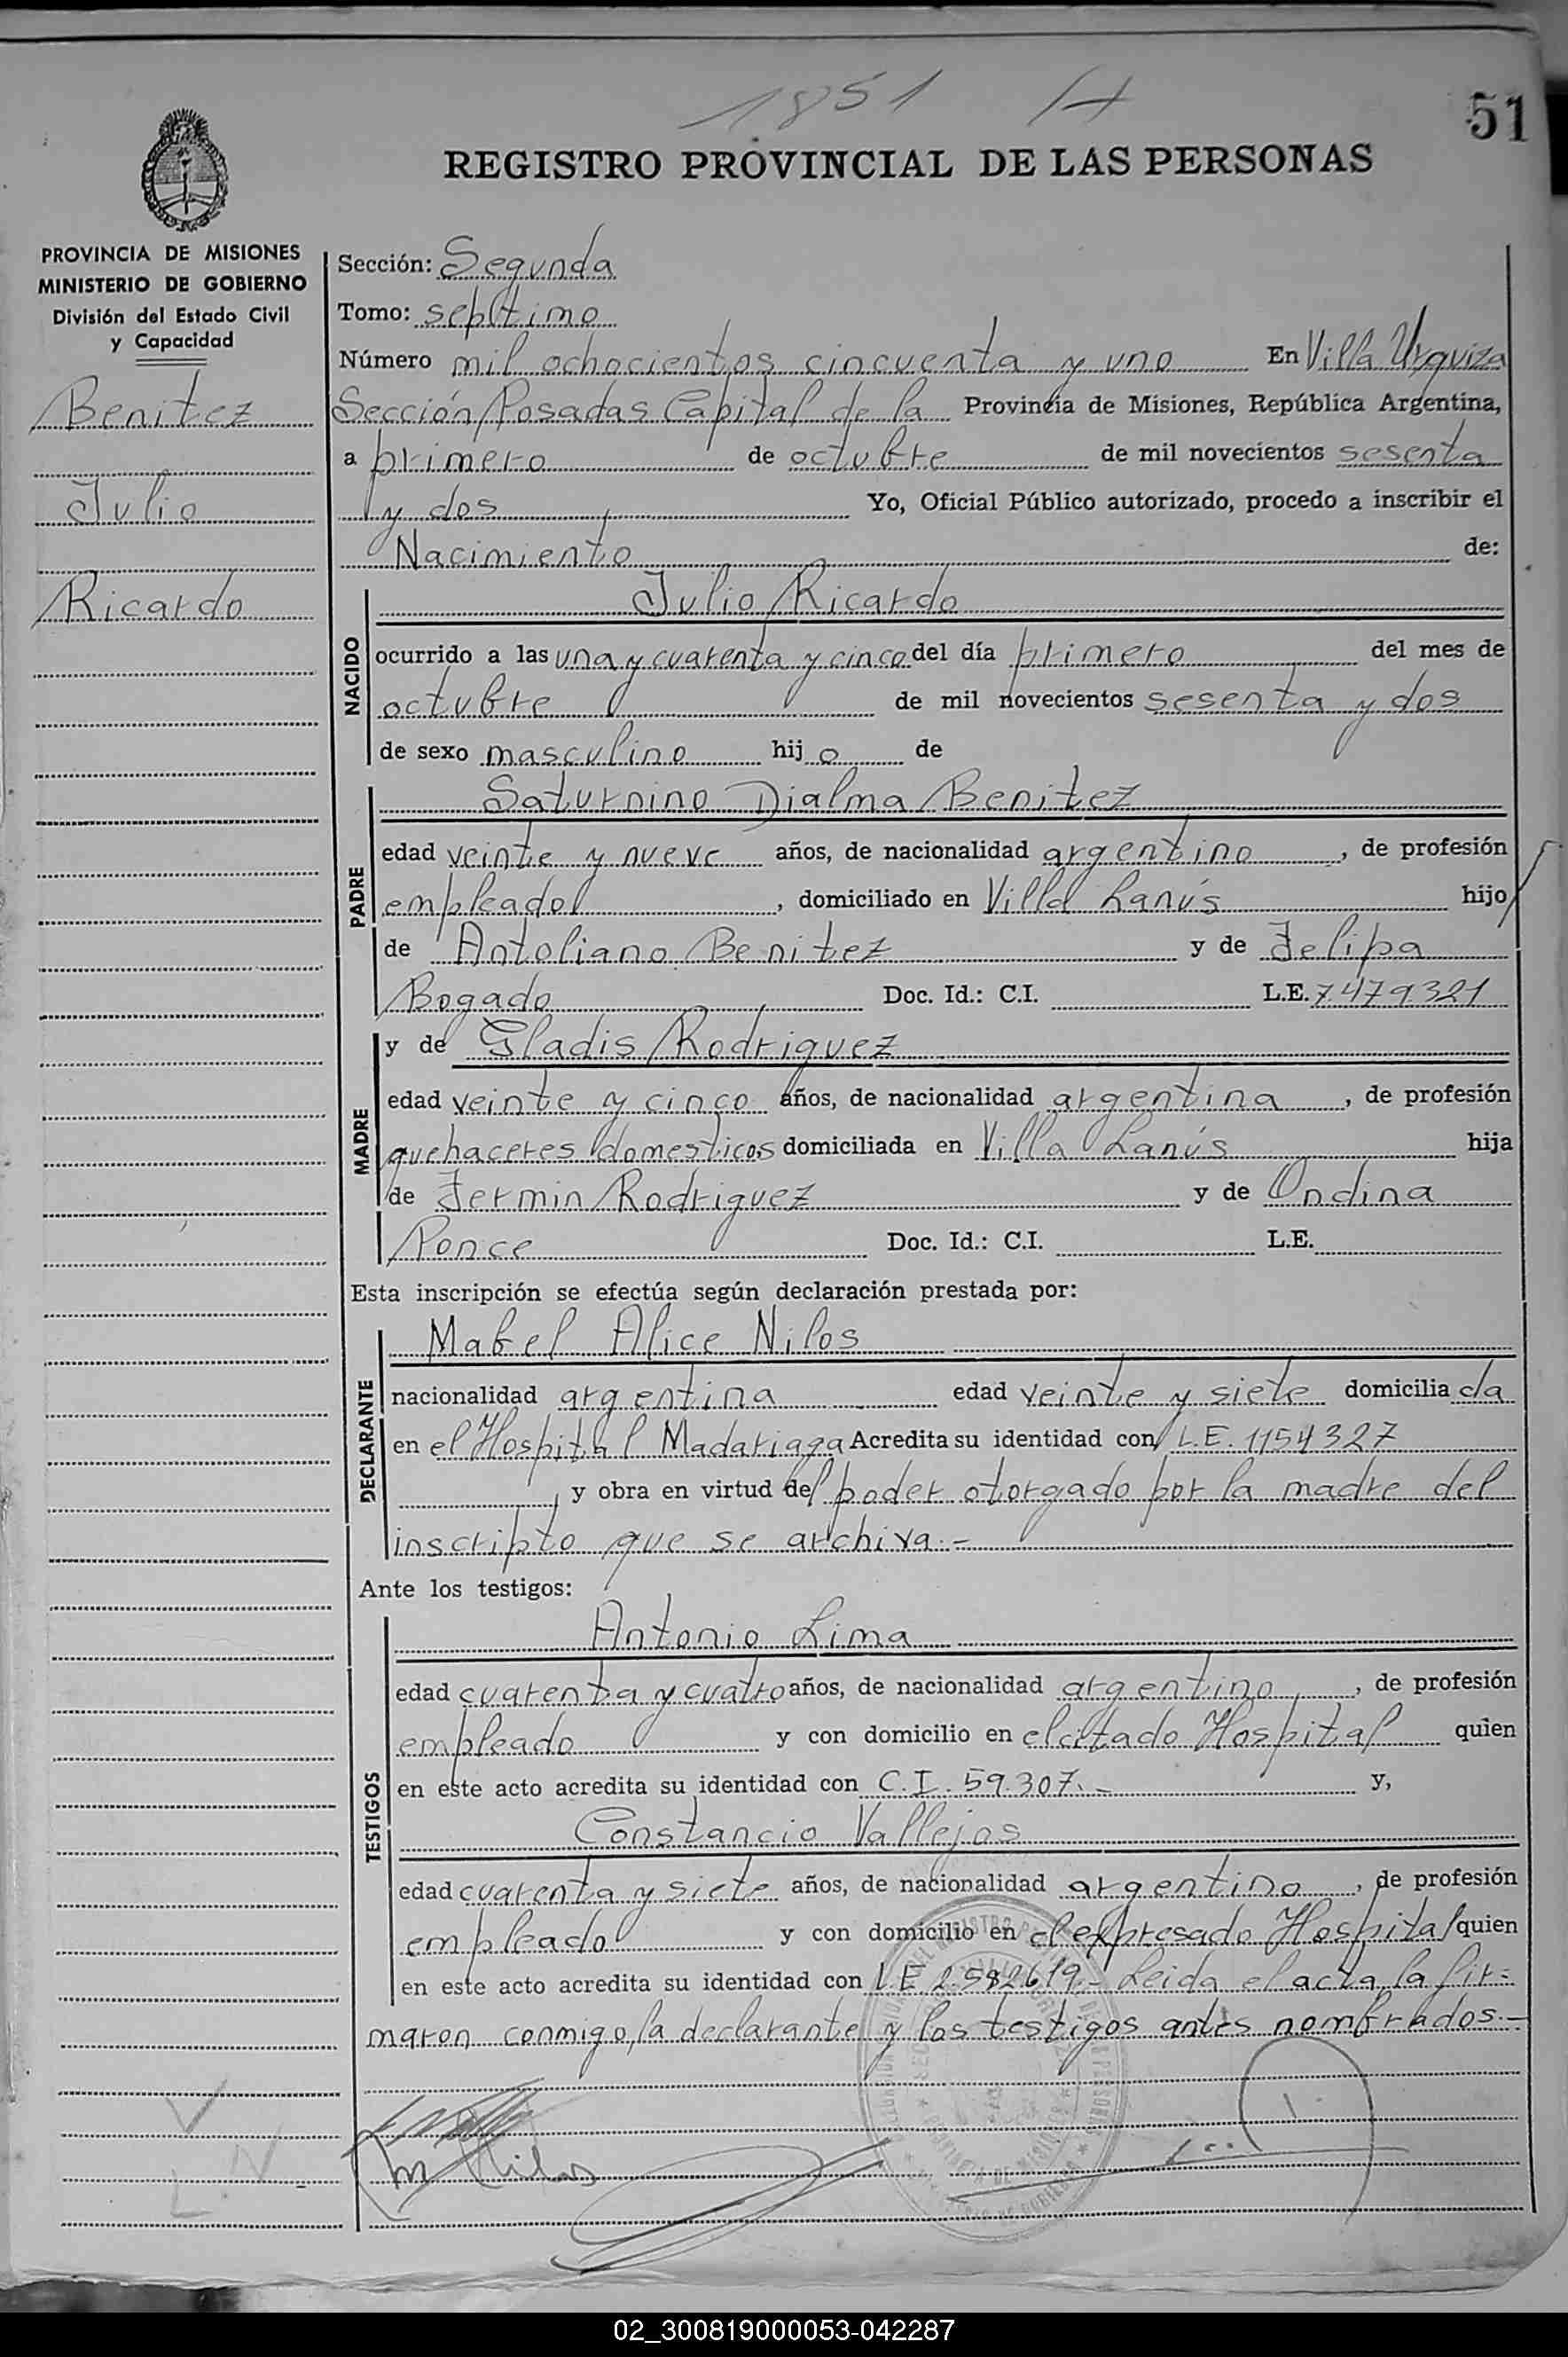 1851 H
51
REGISTRO PROVINCIAL DE LAS PERSONAS
PROVINCIA DE MISIONES
MINISTERIO DE GOBIERNO
División del Estado Civil
y Capacidad
Benitez
Julio
Ricardo
Sección: Segunda
Tomo: septimo
Número mil ochocientos cincuenta y uno En Villa Urquiza
Sección Posadas Capital de la Provincia de Misiones, República Argentina,
a primero de octubre de mil novecientos sesenta
y dos Yo, Oficial Público autorizado, procedo a inscribir el
Nacimiento de:
NACIDO
Julio Ricardo
ocurrido a las una y cuarenta y cinco del día primero del mes de
octubre de mil novecientos sesenta y dos
de sexo masculino hijo de
PADRE
Saturnino Djalma Benitez
edad veinte y nueve años, de nacionalidad argentino, de profesión
empleado, domiciliado en Villa Lanús hijo
de Antoliano Benitez y de Felipa
Bogado Doc. Id.: C.I. L.E. 7479321
MADRE
y de Gladis Rodriguez
edad veinte y cinco años, de nacionalidad argentina, de profesión
quehaceres domesticos domiciliada en Villa Lanús hija
de Fermin Rodriguez y de Ondina
Ponce Doc. Id.: C.I. L.E.
Esta inscripción se efectúa según declaración prestada por:
DECLARANTE
Mabel Alice Nilos
nacionalidad argentina edad veinte y siete domiciliada
en el Hospital Madariaga Acredita su identidad con L.E. 1154327
, y obra en virtud del poder otorgado por la madre del
inscripto que se archiva.-
Ante los testigos:
TESTIGOS
Antonio Lima
edad cuarenta y cuatro años, de nacionalidad argentino, de profesión
empleado y con domicilio en el citado Hospital quien
en este acto acredita su identidad con C.I. 59.307.- y,
Constancio Vallejos
edad cuarenta y siete años, de nacionalidad argentino, de profesión
empleado y con domicilio en el expresado Hospital quien
en este acto acredita su identidad con L.E. 2.582.619.- Leida el acta la fir-
maron conmigo, la declarante y los testigos antes nombrados.-
M Nilos
02_300819000053-042287